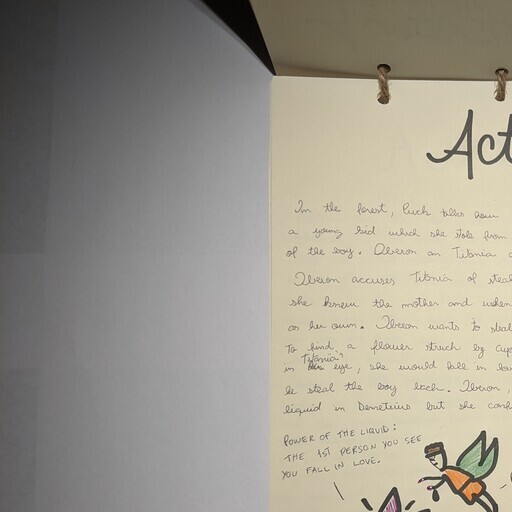 Act
In the forest, Puck talks how
a young kid which she stole from
of the boy. Oberon an Titania
Oberon accuses Titania of steal
she knew the mother and when
as her own. Oberon wants to steal
To find a flower struck by cup
in Titania's eye, she would fall in lov
be steal the boy back. Oberon,
liquid in Demetrius but she conf
POWER OF THE LIQUID:
THE 1ST PERSON YOU SEE
YOU FALL IN LOVE.